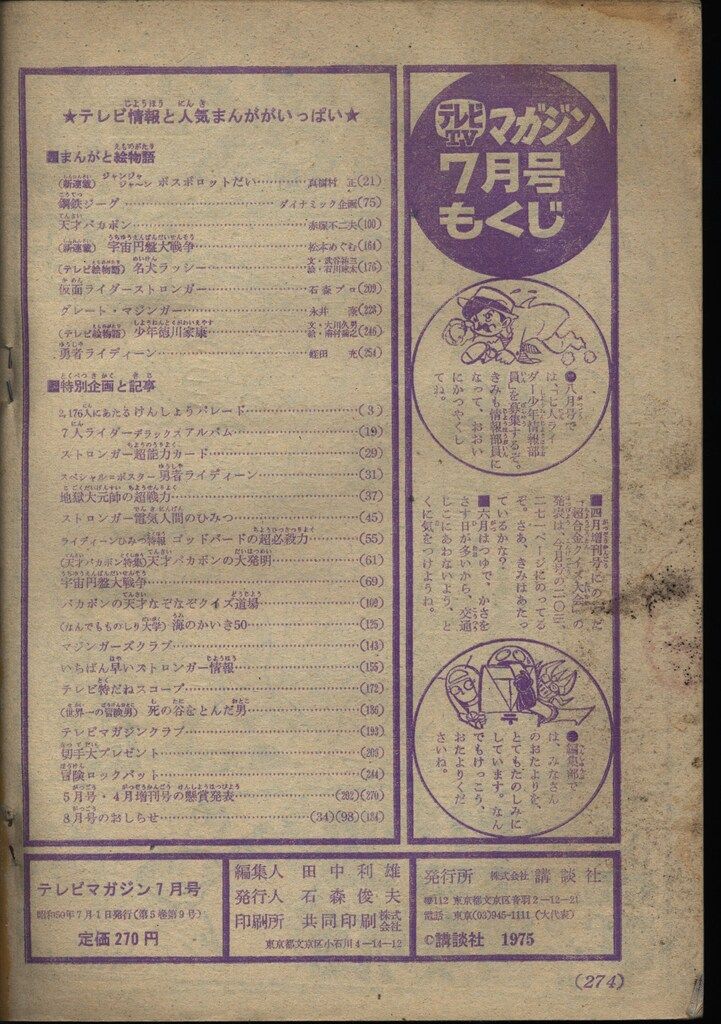 テレビTVマガジン
7月号
もくじ
★テレビ情報と人気まんががいっぱい★
■まんがと絵物語
(新連載) ジャンジャジャ〜ン ボスボロットだい…………真樹村 正(21)
鋼鉄ジーグ…………ダイナミック企画(75)
天才バカボン…………赤塚不二夫(100)
(新連載) 宇宙円盤大戦争…………松本めぐむ(164)
(テレビ絵物語) 名犬ラッシー…………(176)
仮面ライダーストロンガー…………石森プロ(209)
グレート・マジンガー…………永井 豪(228)
(テレビ絵物語) 少年徳川家康…………文・大川久男(246)
勇者ライディーン…………蛭田 充(254)
■特別企画と記事
2,176人にあたるけんしょうパレード…………(3)
7人ライダーデラックスアルバム…………(19)
ストロンガー超能力カード…………(29)
スペシャルロポスター勇者ライディーン…………(31)
地獄大元帥の超戦力…………(37)
ストロンガー電気人間のひみつ…………(45)
ライディーンひみつ特報 ゴッドバードの超必殺力…………(55)
(天才バカボン特集)天才バカボンの大発明…………(61)
宇宙円盤大戦争…………(69)
バカボンの天才なぞなぞクイズ道場…………(102)
(なんでもものしり大学) 海のかいき50…………(125)
マジンガーズクラブ…………(143)
いちばん早いストロンガー情報…………(155)
テレビ特だねスコープ…………(172)
(世界一の冒険男) 死の谷をとんだ男…………(186)
テレビマガジンクラブ…………(193)
切手大プレゼント…………(203)
冒険ロックバット…………(244)
5月号・4月増刊号の懸賞発表…………(202)(270)
8月号のおしらせ…………(34)(98)(184)
●八月号で
は、七人ライ
ダー少年情報部
員を募集するぞ。
きみも情報部員に
なって、おおい
にかつやくし
てね。
■四月増刊号にのってた
「超合金クイズ大会」の
発表は、今月号の二〇三、
二七一ページにのってる
ぞ。さあ、きみはあたっ
ているかな？
■六月はつゆで、かさを
さす日が多いから、交通
じこにあわないよう、と
くに気をつけようね。
●編集部で
は、みなさん
のおたよりを、
とてもたのしみに
しています。なん
でもけっこう、
おたよりくだ
さいね。
テレビマガジン7月号
昭和50年7月1日発行(第5巻第9号)
定価270円
編集人 田中利雄
発行人 石森俊夫
印刷所 共同印刷株式会社
東京都文京区小石川4—14—12
発行所 株式会社 講談社
〒112 東京都文京区音羽2—12—21
電話 東京(03)945-1111(大代表)
©講談社 1975
(274)